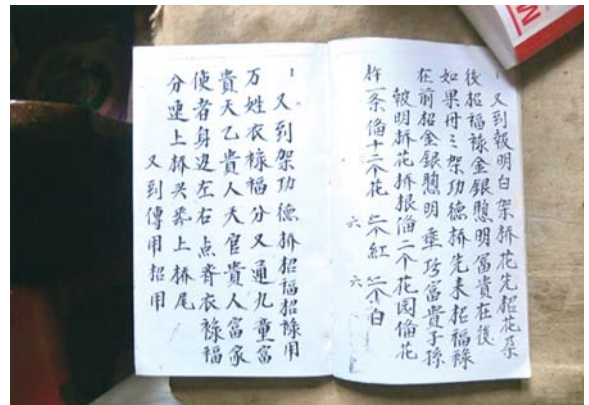 又到報明白架桥花先招花朶
後招福祿金銀聰明富貴在後
如果冊三架功德桥先来招福祿
在前招金銀聰明垂富貴子孫
報明桥花桥根俻二个花园俻花
杵一条俻十二个花 六个紅 六个白
又到架功德桥招福招祿用
万姓衣祿福分又通九童富
貴天乙貴人天官貴人富家
使者身边左右点音衣祿福
分連上桥头上桥尾
又到傳用招用